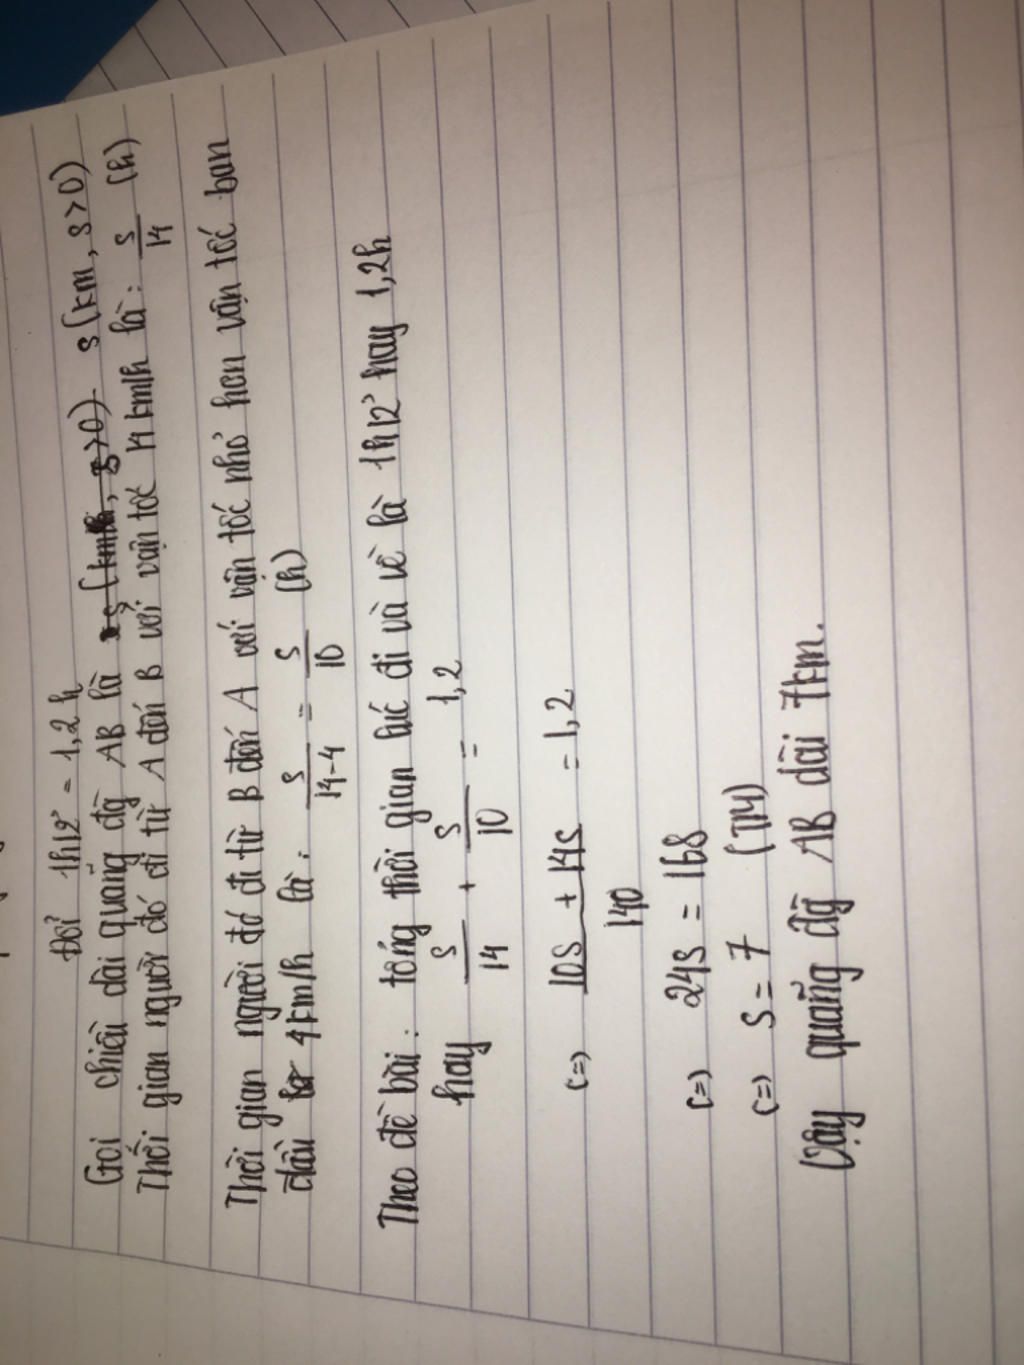 Đổi 1h12' = 1,2 h
Gọi chiều dài quãng đg AB là s (km/h, s>0) s (km, s>0)
Thời gian người đó đi từ A đến B với vận tốc 14 km/h là: s/14 (h)
Thời gian người đó đi từ B đến A với vận tốc nhỏ hơn vận tốc ban
đầu 4km/h là: s/14-4 = s/10 (h)
Theo đề bài: tổng thời gian lúc đi và về là 1h12' hay 1,2h
hay s/14 + s/10 = 1,2
<=> 10s + 14s/140 = 1,2
<=> 24s = 168
<=> s = 7 (TM)
Vậy quãng đg AB dài 7km.